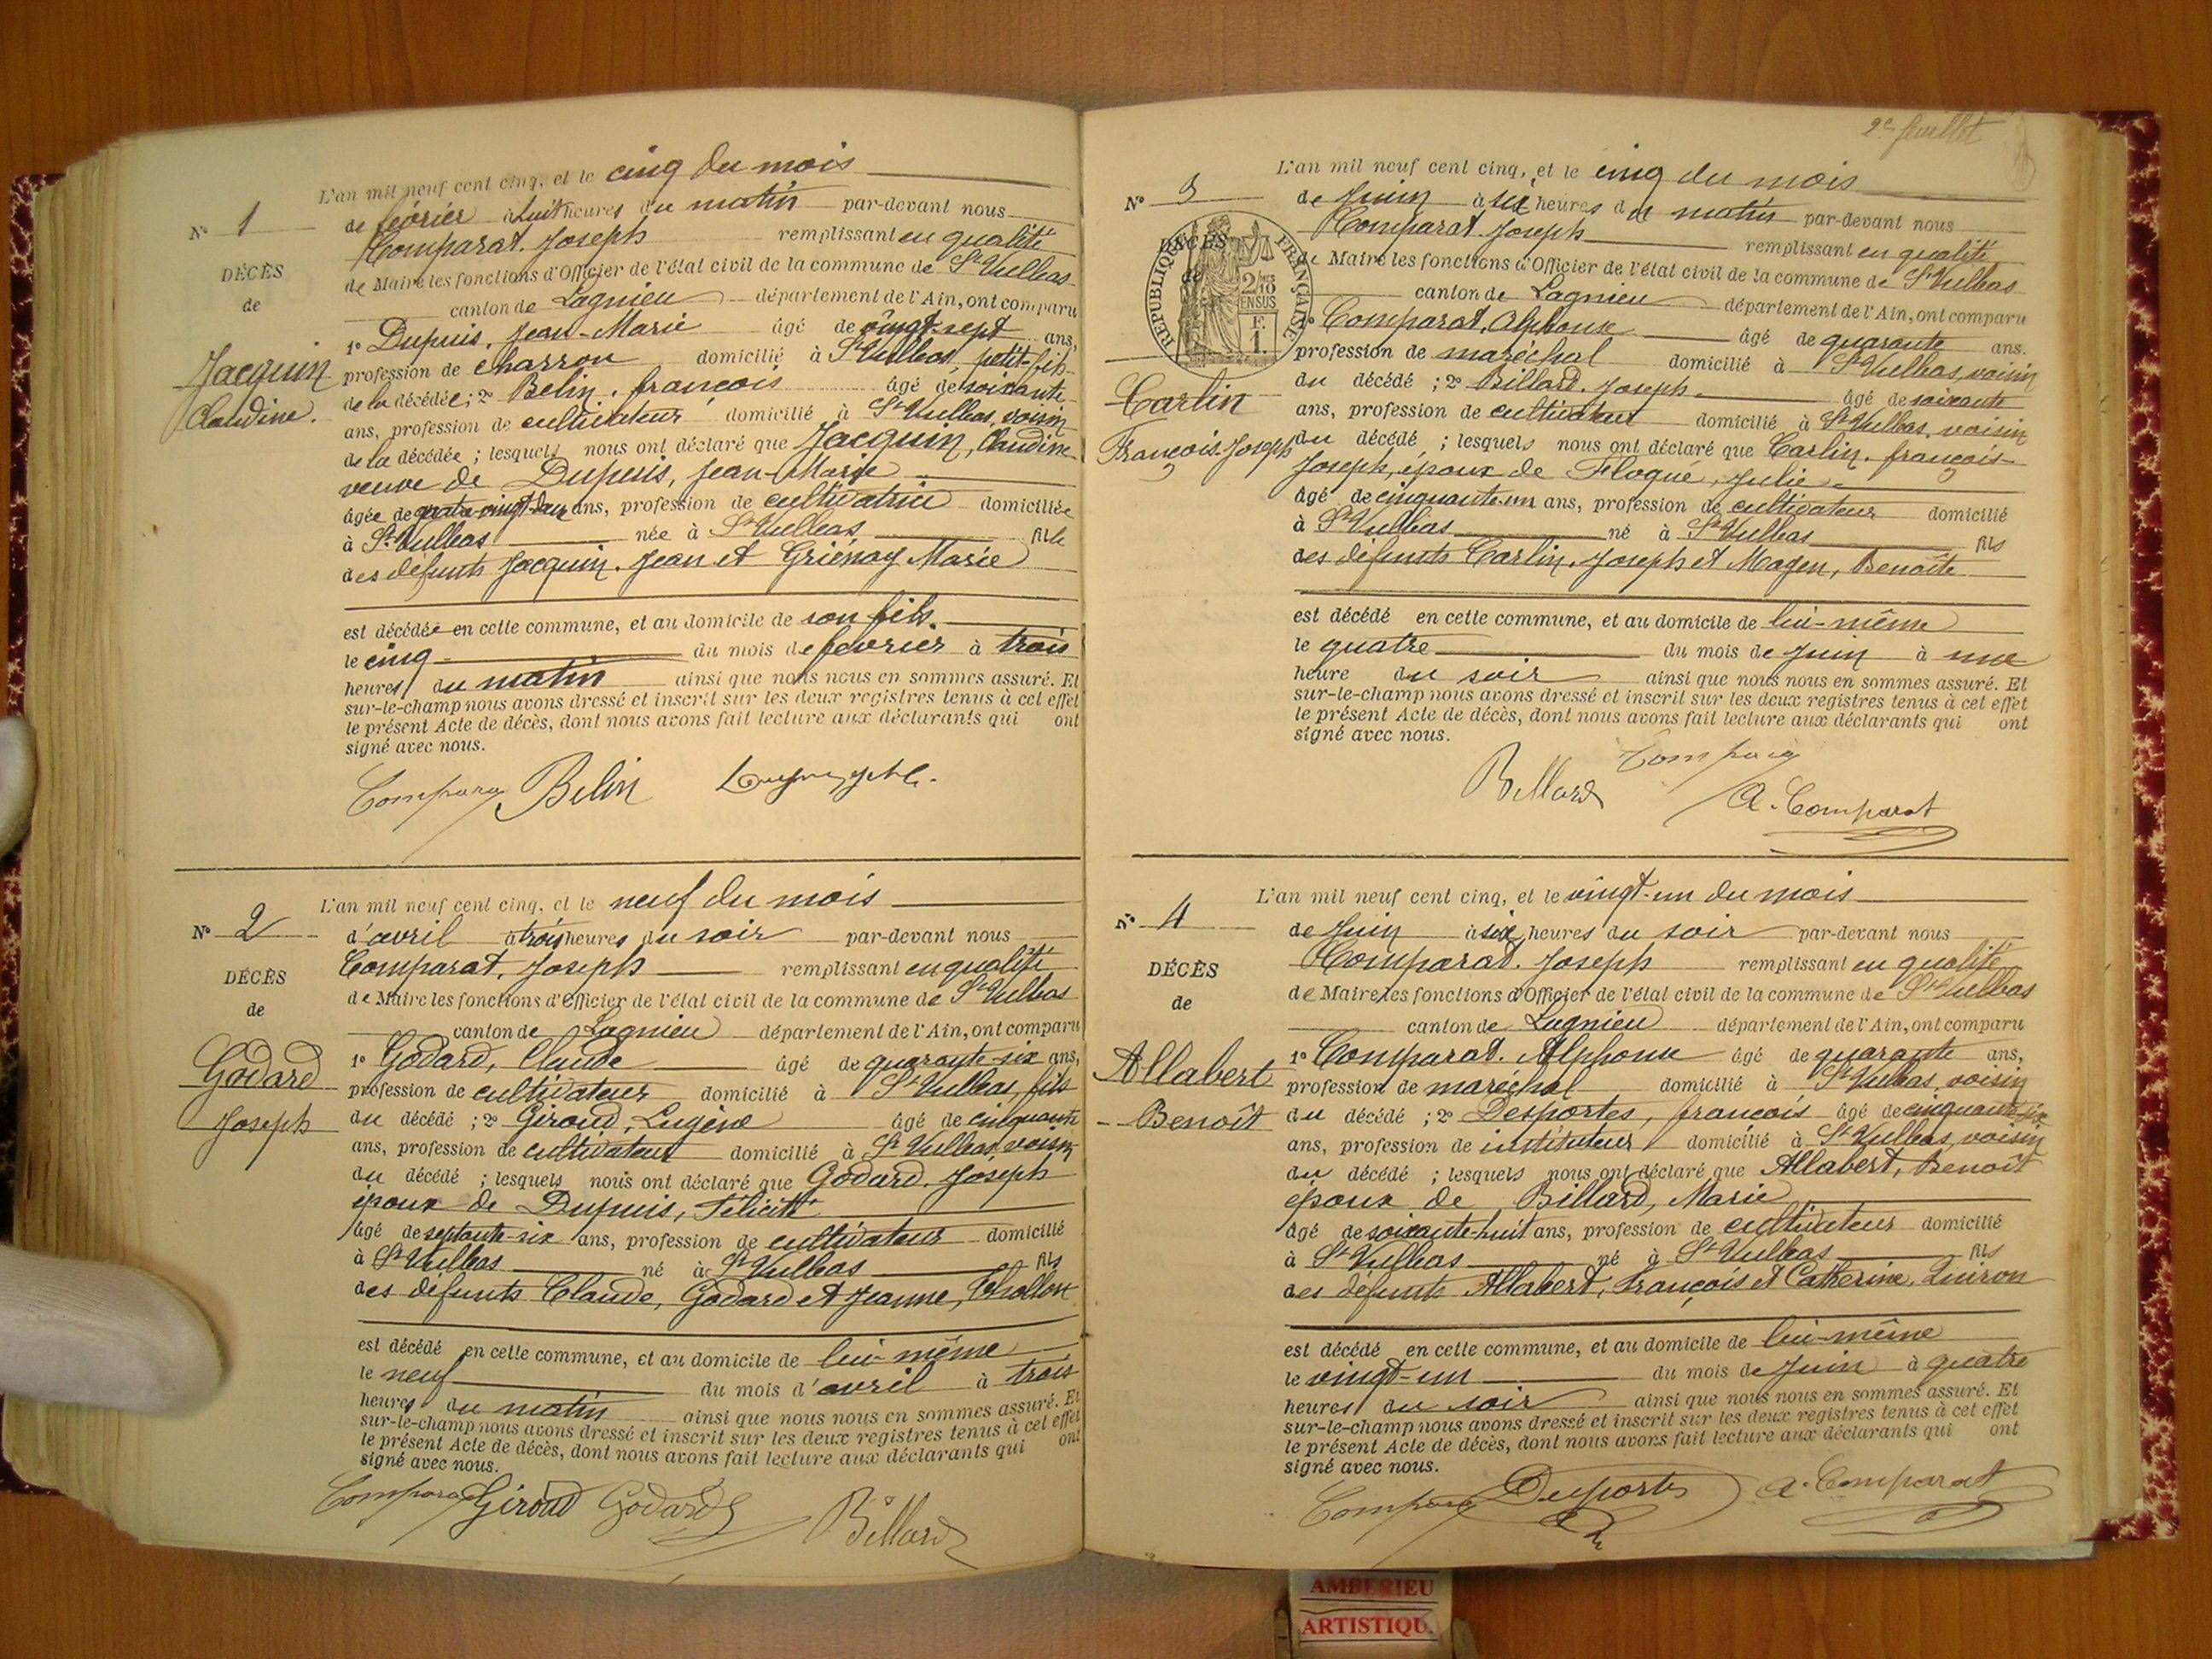 L'an mil neuf cent cinq, et le cinq du mois
N° 1
de février à huit heures du matin par-devant nous
Comparat, Joseph remplissant en qualité
DÉCÈS
de Maire les fonctions d'Officier de l'état civil de la commune de St Vulbas
de
canton de Lagnieu département de l'Ain, ont comparu
1° Dupuis, Jean-Marie âgé de vingt-sept ans,
Jacquin
profession de charron domicilié à St Vulbas, petit-fils
de la décédée; 2° Belin, françois âgé de soixante
Claudine.
ans, profession de cultivateur domicilié à St Vulbas, voisin
de la décédée ; lesquels nous ont déclaré que Jacquin, Claudine
veuve de Dupuis, Jean-Marie
âgée de ans, profession de cultivatrice domiciliée
à St Vulbas née à St Vulbas fille
des défunts Jacquin, Jean et Griénay Marie
est décédée en cette commune, et au domicile de son fils.
le cinq du mois de février à trois
heures du matin ainsi que nous nous en sommes assuré. Et
sur-le-champ nous avons dressé et inscrit sur les deux registres tenus à cet effet
le présent Acte de décès, dont nous avons fait lecture aux déclarants qui ont
signé avec nous.
Belin
L'an mil neuf cent cinq, et le neuf du mois
N° 2
d'avril à trois heures du soir par-devant nous
Comparat, Joseph remplissant en qualité
DÉCÈS
de Maire les fonctions d'Officier de l'état civil de la commune de St Vulbas
de
canton de Lagnieu département de l'Ain, ont comparu
Godard
1° Godard, Claude âgé de quarante-six ans,
profession de cultivateur domicilié à St Vulbas, fils
Joseph
du décédé ; 2° Giroud, Eugène âgé de cinquante
ans, profession de cultivateur domicilié à St Vulbas, voisin
du décédé ; lesquels nous ont déclaré que Godard, Joseph
époux de Dupuis, Félicité
âgé de septante-six ans, profession de cultivateur domicilié
à St Vulbas né à St Vulbas fils
des défunts Claude, Godard et Jeanne, Thollon
est décédé en cette commune, et au domicile de lui-même
le neuf du mois d'avril à trois
heures du matin ainsi que nous nous en sommes assuré. Et
sur-le-champ nous avons dressé et inscrit sur les deux registres tenus à cet effet
le présent Acte de décès, dont nous avons fait lecture aux déclarants qui ont
signé avec nous.
Giroud Godard
Billard
2e feuillet
L'an mil neuf cent cinq, et le cinq du mois
N° 3
de Juin à six heures du matin par-devant nous
Comparat, Joseph remplissant en qualité
DÉCÈS
de Maire les fonctions d'Officier de l'état civil de la commune de St Vulbas
de
RÉPUBLIQUE FRANÇAISE
2/10 EN SUS
F. 1.
canton de Lagnieu département de l'Ain, ont comparu
1° Comparat, Alphonse âgé de quarante ans.
profession de maréchal domicilié à St Vulbas, voisin
Carlin
du décédé ; 2° Billard, Joseph âgé de soixante
ans, profession de cultivateur domicilié à St Vulbas, voisin
François-Joseph
du décédé ; lesquels nous ont déclaré que Carlin, françois-
Joseph, époux de Floqué, Julie
âgé de cinquante-un ans, profession de cultivateur domicilié
à St Vulbas né à St Vulbas fils
des défunts Carlin, Joseph et Magen, Benoîte
est décédé en cette commune, et au domicile de lui-même
le quatre du mois de Juin à une
heure du soir ainsi que nous nous en sommes assuré. Et
sur-le-champ nous avons dressé et inscrit sur les deux registres tenus à cet effet
le présent Acte de décès, dont nous avons fait lecture aux déclarants qui ont
signé avec nous.
Billard
A. Comparat
L'an mil neuf cent cinq, et le vingt-un du mois
N° 4
de Juin à six heures du soir par-devant nous
Comparat, Joseph remplissant en qualité
DÉCÈS
de Maire les fonctions d'Officier de l'état civil de la commune de St Vulbas
de
canton de Lagnieu département de l'Ain, ont comparu
Allabert
1° Comparat, Alphonse âgé de quarante ans,
profession de maréchal domicilié à St Vulbas, voisin
Benoît
du décédé ; 2° Desportes, françois âgé de cinquante-six
ans, profession de instituteur domicilié à St Vulbas, voisin
du décédé ; lesquels nous ont déclaré que Allabert, Benoît
époux de Billard, Marie
âgé de soixante-huit ans, profession de cultivateur domicilié
à St Vulbas né à St Vulbas fils
des défunts Allabert, François et Catherine, Quiron
est décédé en cette commune, et au domicile de lui-même
le vingt-un du mois de Juin à quatre
heures du soir ainsi que nous nous en sommes assuré. Et
sur-le-champ nous avons dressé et inscrit sur les deux registres tenus à cet effet
le présent Acte de décès, dont nous avons fait lecture aux déclarants qui ont
signé avec nous.
Desportes A. Comparat
AMBERIEU
ARTISTIQU